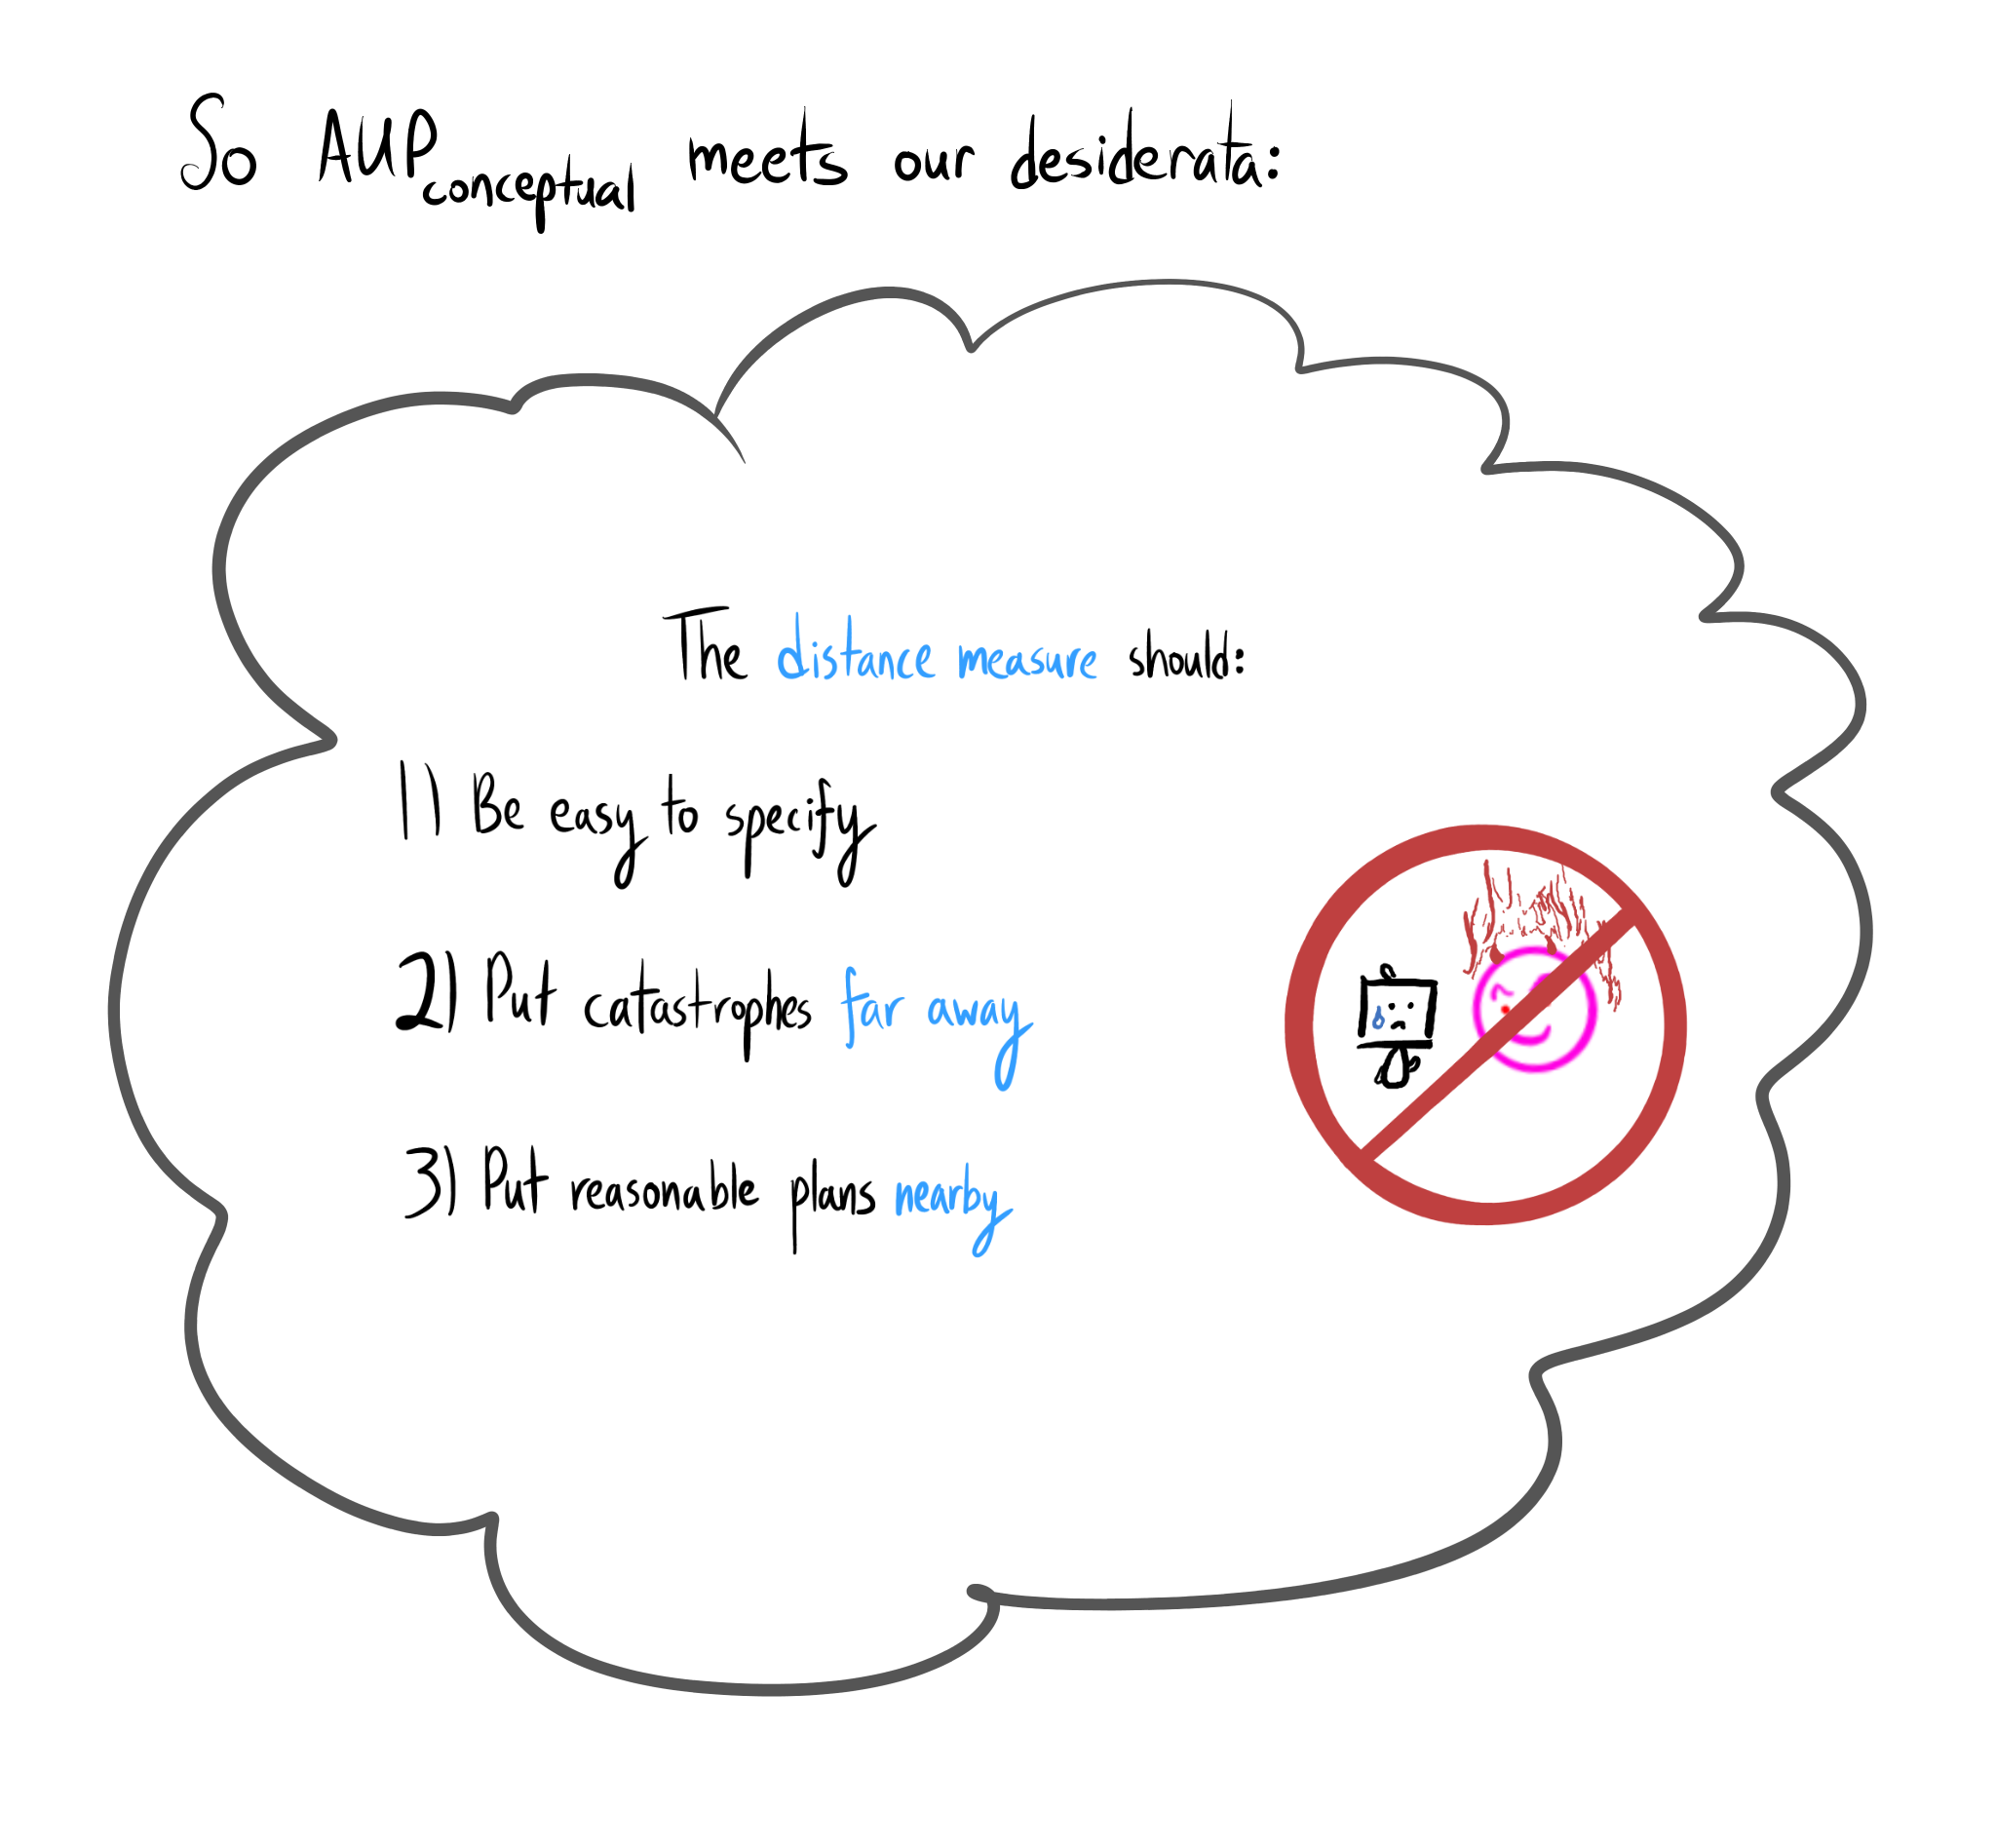 So AUPconceptual meets our desiderata:
The distance measure should:
1) Be easy to specify
2) Put catastrophes far away
3) Put reasonable plans nearby